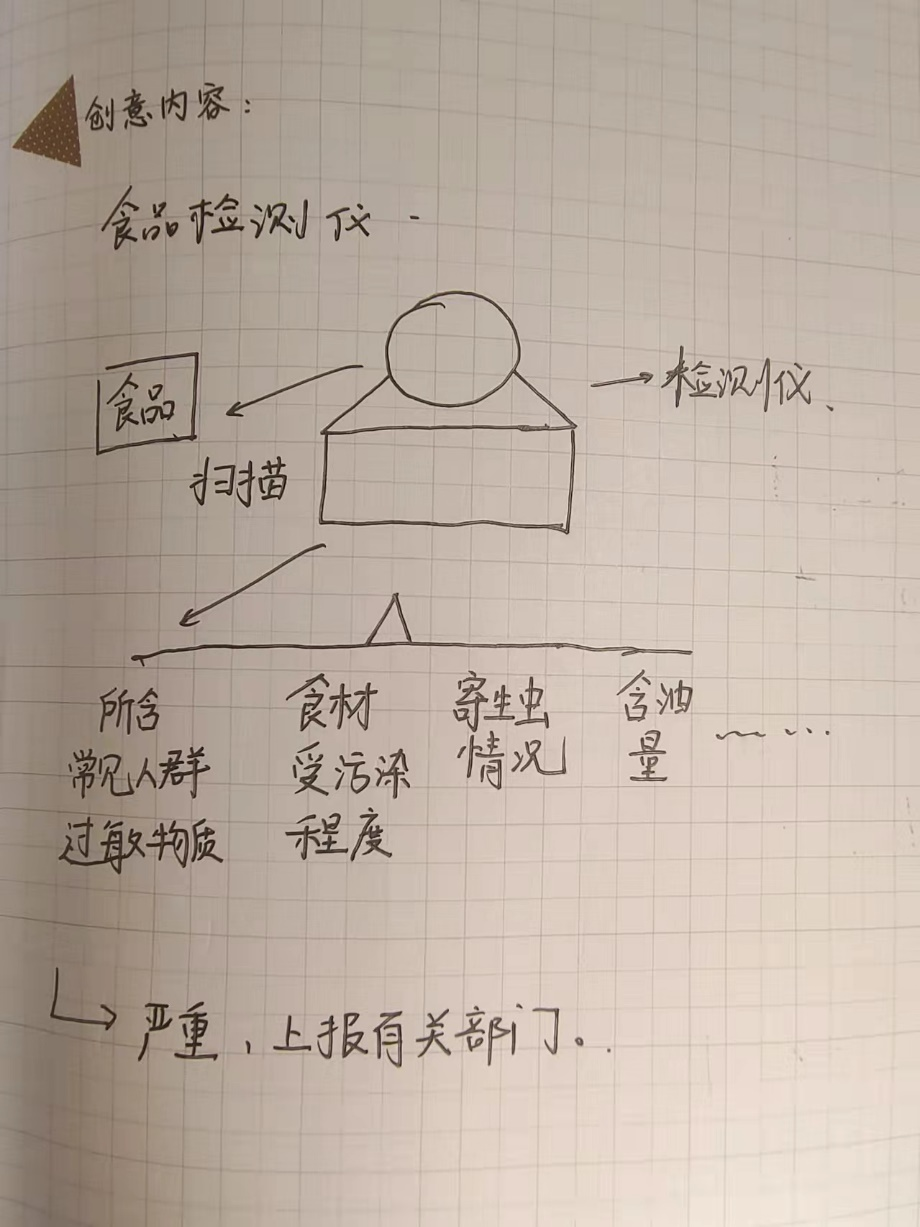 创意内容：
食品检测仪
食品
检测仪、
扫描
所含
常见人群
过敏物质
食材
受污染
程度
寄生虫
情况
含油
量
～～ …
严重，上报有关部门。